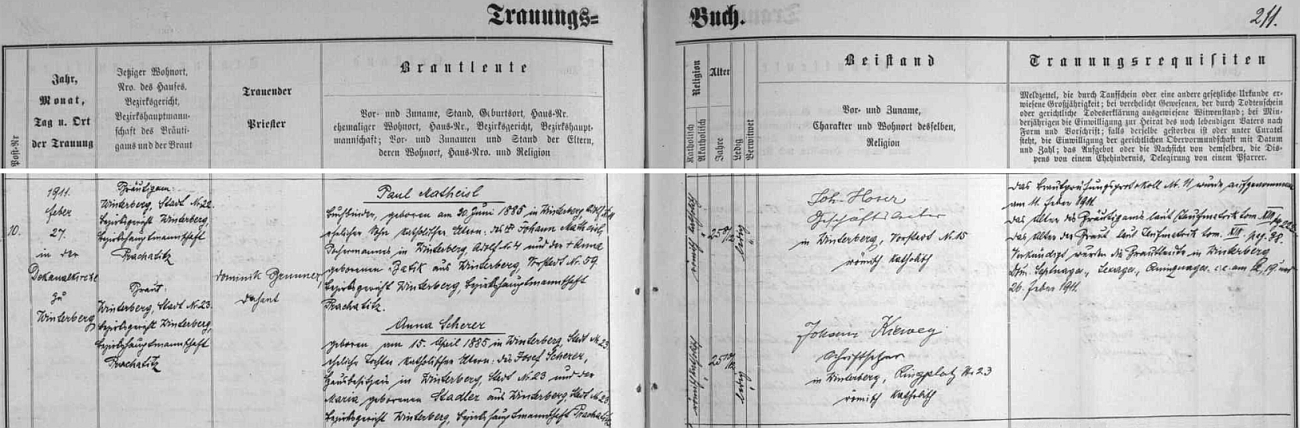 Trauungs=
Buch.
211.
Post-Nr
Jahr,
Monat,
Tag u. Ort
der Trauung
Jetziger Wohnort,
Nro. des Hauses,
Bezirksgericht,
Bezirkshauptmann-
schaft des Bräuti-
gams und der Braut
Trauender
Priester
Brautleute
Vor- und Zuname, Stand, Geburtsort, Haus-Nr.
ehemaliger Wohnort, Haus-Nr., Bezirksgericht, Bezirkshaupt-
mannschaft; Vor- und Zunamen und Stand der Eltern,
deren Wohnort, Haus-Nro. und Religion
Religion
Katholisch
Akatholisch
Alter
Jahre
Ledig
Verwitwet
Beistand
Vor- und Zuname,
Charakter und Wohnort desselben,
Religion
Trauungsrequisiten
Meldzettel, die durch Taufschein oder eine andere gesetzliche Urkunde er-
wiesene Großjährigkeit; bei verehelicht Gewesenen, der durch Todtenschein
oder gerichtliche Todeserklärung ausgewiesene Witwenstand; bei Min-
derjährigen die Einwilligung zur Heirat des noch lebenden Vaters nach
Form und Vorschrift; falls derselbe gestorben ist oder unter Curatel
steht, die Einwilligung der gerichtlichen Obervormundschaft mit Datum
und Zahl; das Aufgebot oder die Nachsicht von demselben, die Dis-
pens von einem Ehehindernis, Delegirung von einem Pfarrer.
10.
1911.
Feber
27.
in der
Dekanalkirche
zu
Winterberg
Bräutigam:
Winterberg, Stadt Nr. 22.
Bezirksgericht Winterberg,
Bezirkshauptmannschaft
Prachatitz
Braut:
Winterberg, Stadt Nr. 23.
Bezirksgericht Winterberg,
Bezirkshauptmannschaft
Prachatitz
Dominik
Dechant
Paul Matheisl
Buchbinder, geboren am 30. Juni 1885 in Winterberg
ehelicher Sohn katholischer Eltern: des Johann Matheisl
in Winterberg Adolfst. 4 und der Anna
geborenen aus Winterberg, Vorstadt Nr. 59.
Bezirksgericht Winterberg, Bezirkshauptmannschaft
Prachatitz.
Anna Scherer
geboren am 15. April 1885 in Winterberg, Stadt Nr. 23
eheliche Tochter katholischer Eltern: des Josef Scherer,
Hausbesitzers in Winterberg, Stadt Nr. 23 und der
Maria geborenen Stadler aus Winterberg, Stadt Nr. 23
Bezirksgericht Winterberg, Bezirkshauptmannschaft Prachatitz
römisch katholisch
25
ledig
römisch katholisch
25
ledig
Joh.
Geschäftsleiter
in Winterberg, Vorstadt Nr. 15
römisch katholisch
Johann
Schriftsetzer
in Winterberg, Ringplatz Nr. 23
römisch katholisch
Das Brautprüfungsprotokoll Nr. 11 wurde aufgenommen
am 11. Feber 1911.
Das Alter des Bräutigams laut Taufmatrik tom. XIII
Das Alter der Braut laut Taufmatrik tom. XIII. pag.
Verkündigt wurden die Brautleute in Winterberg
Dom. Septuages., Sexages., Quinquages. am 12., 19. und
26. Feber 1911.